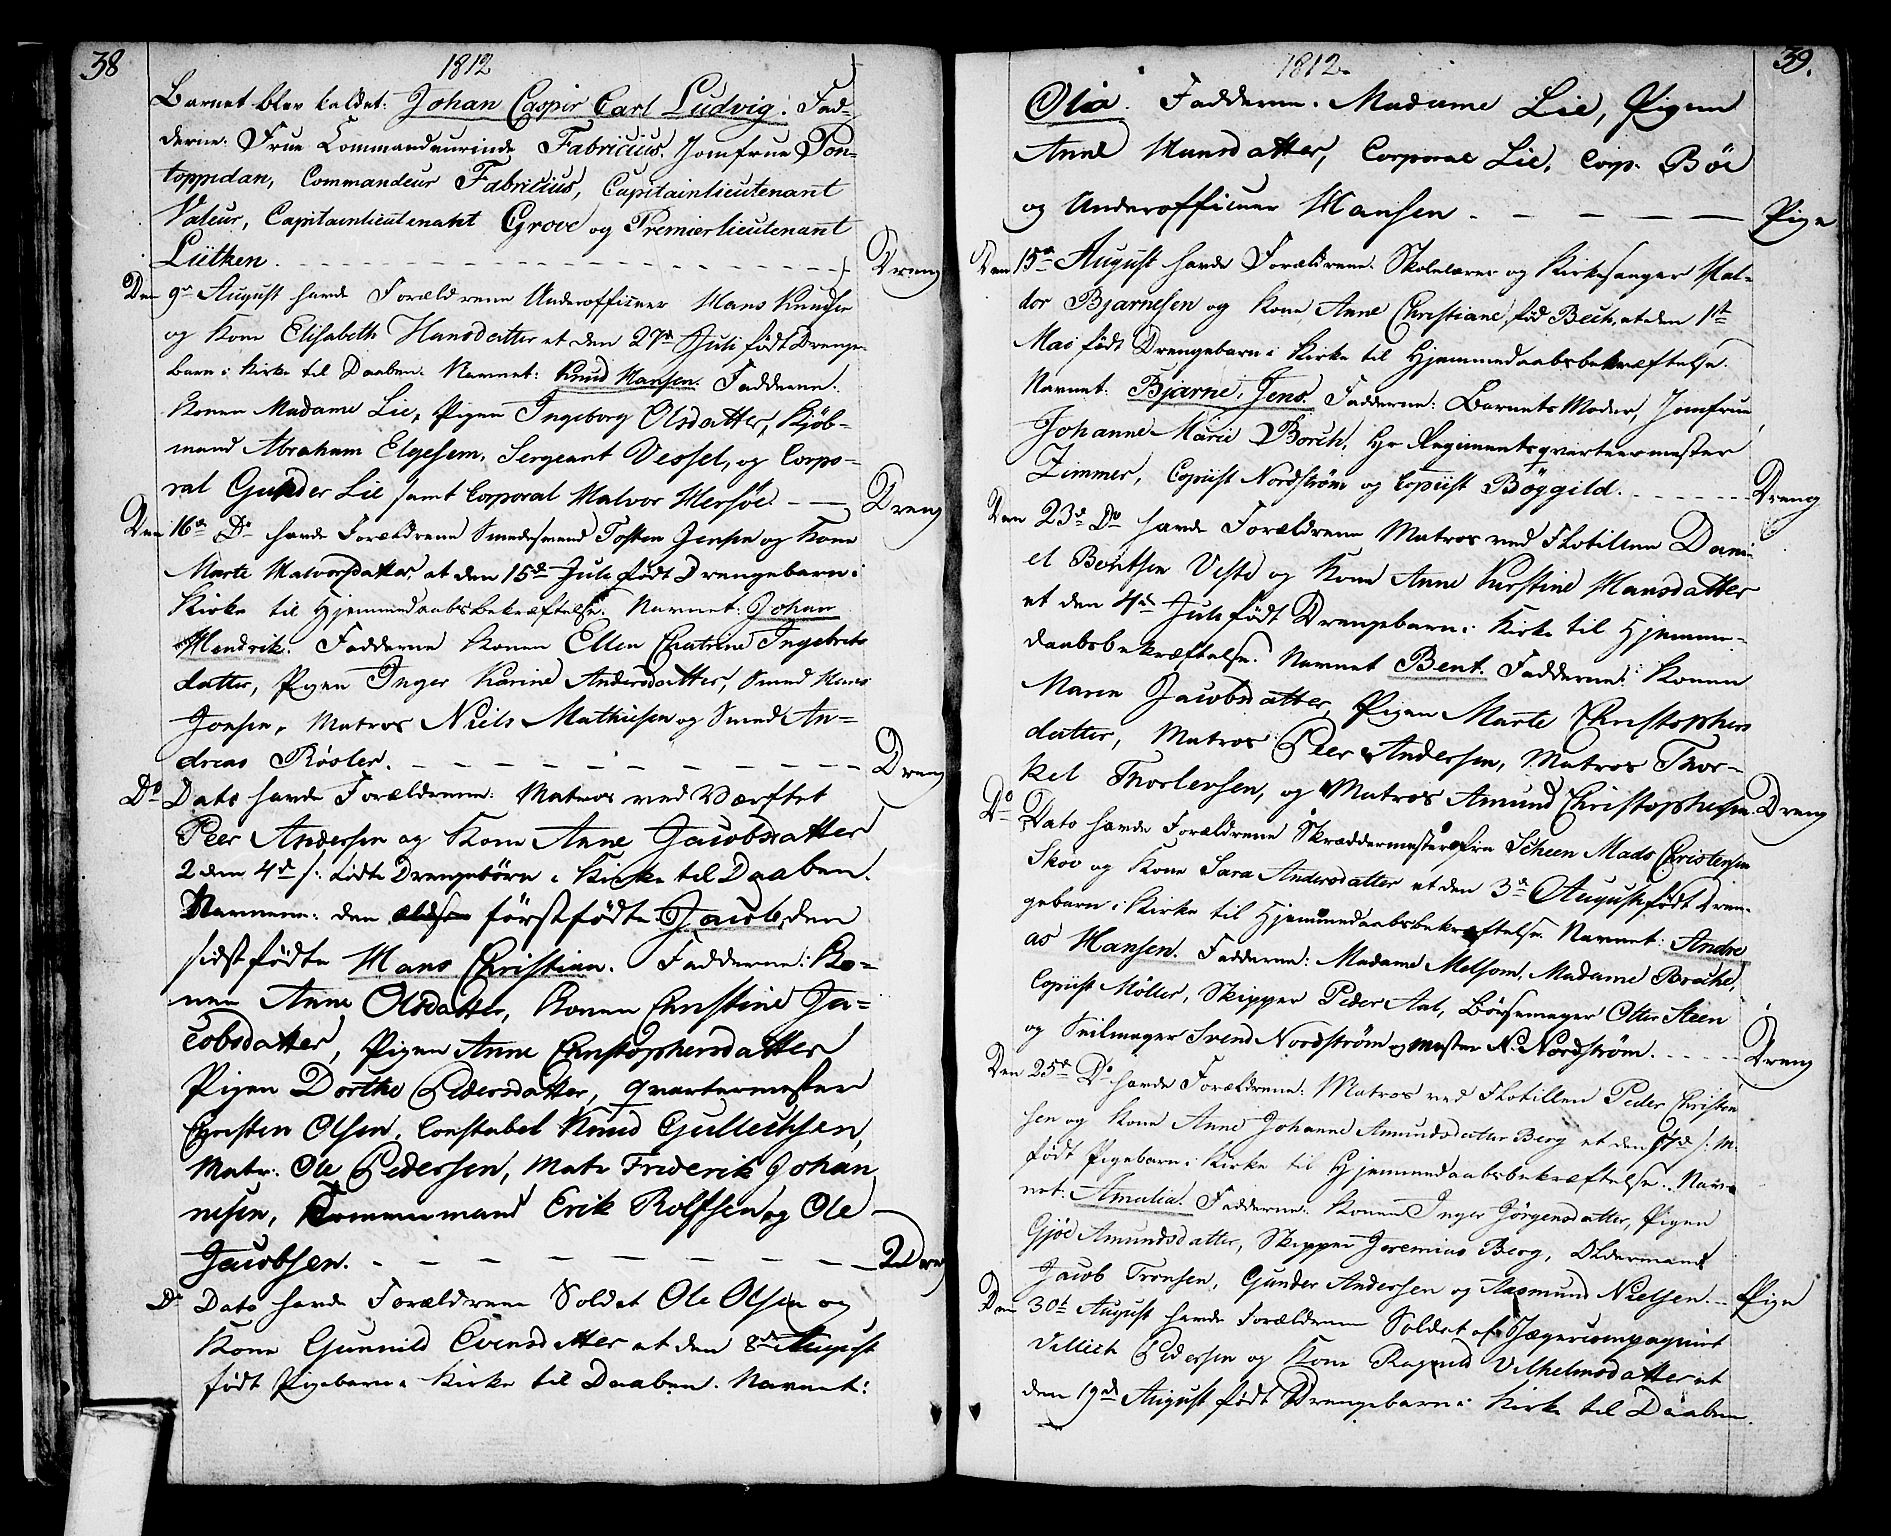 38
1812
Barnet blev kaldet: Johan Caspir Carl Ludvig. Fad-
derne: Frue Commandeurinde Fabricius. Jomfrue Pon-
toppidan, Commandeur Fabricius, Capitainlieutenant
Valeur, Capitainlieutenant Grove og Premierlieutenant
Lütken. Dreng
Den 9de August havde Forældrene Underofficeer Hans Knudsen
og Kone Elisabeth Hansdatter et den 27de Juli født Drenge-
barn i Kirke til Daaben. Navnet: Knud Hansen. Fadderne:
Konen Madame Lie, Pigen Ingeborg Olsdatter, Kjöb-
mand Abraham Elgesem, Sergeant Vessel, og Corpo-
ral Gunder Lie samt Corporal Halvor Hersöe. Dreng
Den 16de Do havde Forældrene Smedesvend Tosten Jensen og Kone
Marte Halvorsdatter, et den 15de Juli født Drengebarn i
Kirke til Hjemmedaabsbekræftelse. Navnet: Johan
Hendrik. Fadderne Konen Ellen Chatrine Ingebrets
datter, Pigen Inger Karine Andersdatter, Smed Hans
Jonsen, Matros Niels Mathisen og Smed An-
dreas Røsler. Dreng
Do Dato havde Forældrene: Matros ved Værftet
Peer Andersen og Kone Anne Jacobsdatter
2 den 4de s: fødte Drengebörn i Kirke til Daaben.
Navnene: den förstfödte Jacob, den
sidstfödte Hans Christian. Fadderne: Ko-
nen Anne Olsdatter, Konen Christine Ja-
cobsdatter, Pigen Anne Christophersdatter
Pigen Dorthe Pedersdatter, Qvartermester
Christen Olsen, Constabel Knud Gulleichsen,
Matr: Ole Pedersen, Matr Friderik Johan
nesen, Tömmermand Erik Rolfsen og Ole
Jacobsen. 2 Dren
Do Dato havde Forældrene Soldat Ole Olsen og
Kone Gunnild Evensdatter et den 8de August
født Pigebarn i Kirke til Daaben. Navnet:
39.
1812.
Olia. Fadderne: Madame Lie, Pigen
Anne Hansdatter, Corporal Lie, Corp. Böe
og Underofficeer Hansen. Pige
Den 15de August havde Forældrene Skolelærer og Kirkesanger Hal-
dor Bjarnesen og Kone Anne Christiane, fød Bech, et den 1ste
Mai født Drengebarn i Kirke til Hjemmedaabsbekræftelse.
Navnet: Bjarne, Jens. Fadderne: Barnets Moder, Jomfrue
Johanne Marie Borch, Hr Regimentsqvarteermester
Zimmer, Copiist Nordström og Copiist Böggild. Dreng
Den 23de Do havde Forældrene Matros ved Flotillen Dani-
el Bentsen Veste og Kone Anne Kirstine Hansdatter
et den 4de Juli født Drengebarn i Kirke til Hjemme-
daabsbekræftelse. Navnet Bent. Fadderne: Konen
Maren Jacobsdatter, Pigen Marte Christophers
datter, Matros Peer Andersen, Matros Thor-
kel Thorlevsen, og Matros Amund Christophersen. Dreng
Do Dato havde Forældrene Skræddermester fra Scheen Mads Christensen
Skov og Kone Sara Andersdatter et den 3de August født Dren-
gebarn i Kirke til Hjemmedaabsbekræftelse. Navnet: Andre
as Hansen. Fadderne: Madame Melsom, Madame Brache,
Copiist Möller, Skipper Peder Aal, Börsemager Otter Steen
og Seilmager Svend Nordström og mester N. Nordström. Dreng
Den 25de Do havde Forældrene: Matros ved Flotillen Peder Christen
sen og Kone Anne Johanne Amundsdatter Berg et den 17de s: M.
født Pigebarn i Kirke til Hjemmedaabsbekræftelse. Nav-
net: Amalia. Fadderne: Konen Inger Jörgensdatter, Pigen
Gjöe Amundsdatter, Skipper Jeremias Berg, Oldermand
Jacob Tronsen, Gunder Andersen og Aasmund Nielsen. Pige
Den 30te August havde Forældrene Soldat af Jægercompagniet
Vellich Pedersen og Kone Ragnild Vilhelmsdatter et
den 19de August født Drengebarn i Kirke til Daaben.